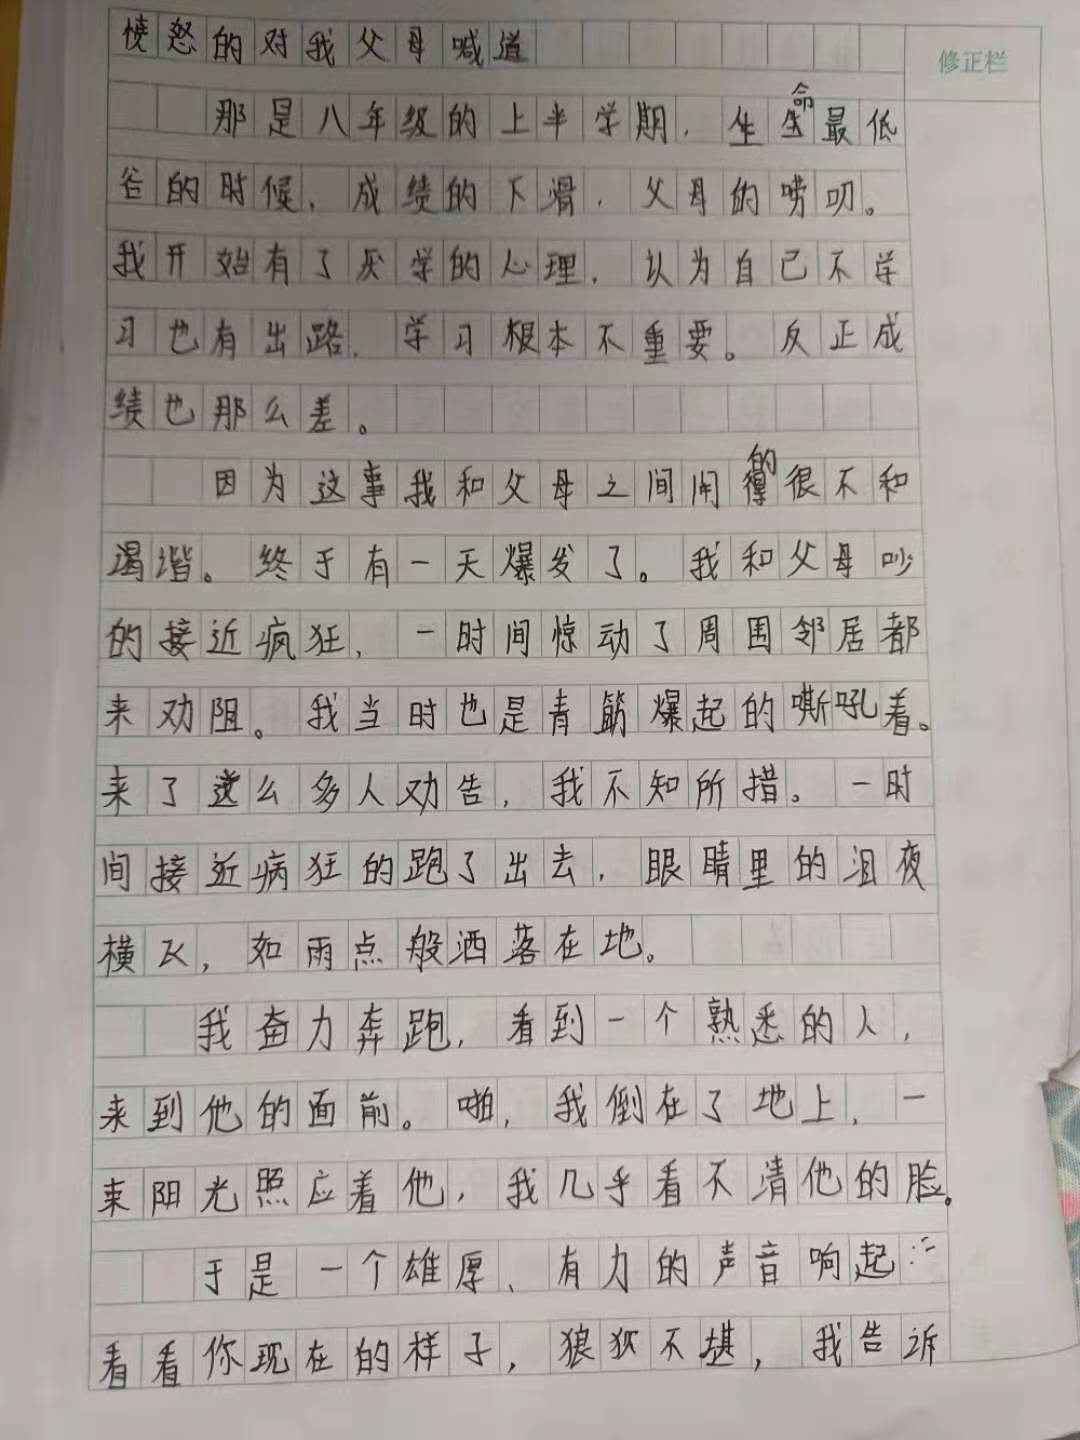 愤怒的对我父母喊道
修正栏
那是八年级的上半学期，生命最低
谷的时候，成绩的下滑，父母的唠叨。
我开始有了厌学的心理，认为自己不学
习也有出路，学习根本不重要。反正成
绩也那么差。
因为这事我和父母之间闹的很不和
谐。终于有一天爆发了。我和父母吵
的接近疯狂，一时间惊动了周围邻居都
来劝阻。我当时也是青筋爆起的嘶吼着。
来了这么多人劝告，我不知所措。一时
间接近病狂的跑了出去，眼睛里的泪夜
横飞，如雨点般洒落在地。
我奋力奔跑，看到一个熟悉的人，
来到他的面前。啪，我倒在了地上，一
束阳光照应着他，我几乎看不清他的脸。
于是一个雄厚、有力的声音响起："
看看你现在的样子，狼狈不堪，我告诉